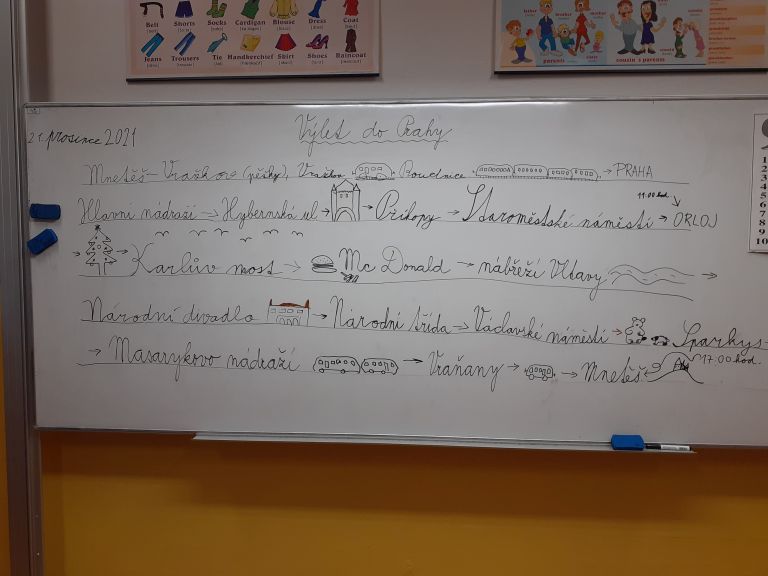 Belt Shorts Socks Cardigan Blouse Dress Coat
Jeans Trousers Tie Handkerchief Skirt Shoes Raincoat
father
parents
cousin's parents
21. prosince 2021
Výlet do Prahy
Mnetěš – Vražkov (pěšky), Vražkov Roudnice → PRAHA
Hlavní nádraží → Hybernská ul → → Příkopy → Staroměstské náměstí → ORLOJ
11.00 hod.
→ → Karlův most → Mc Donald → nábřeží Vltavy →
Národní divadlo → Národní třída → Václavské náměstí → Sparkys
→ Masarykovo nádraží → Vraňany → → Mnetěš
17:00 hod.
1
2
3
4
5
6
7
8
9
10